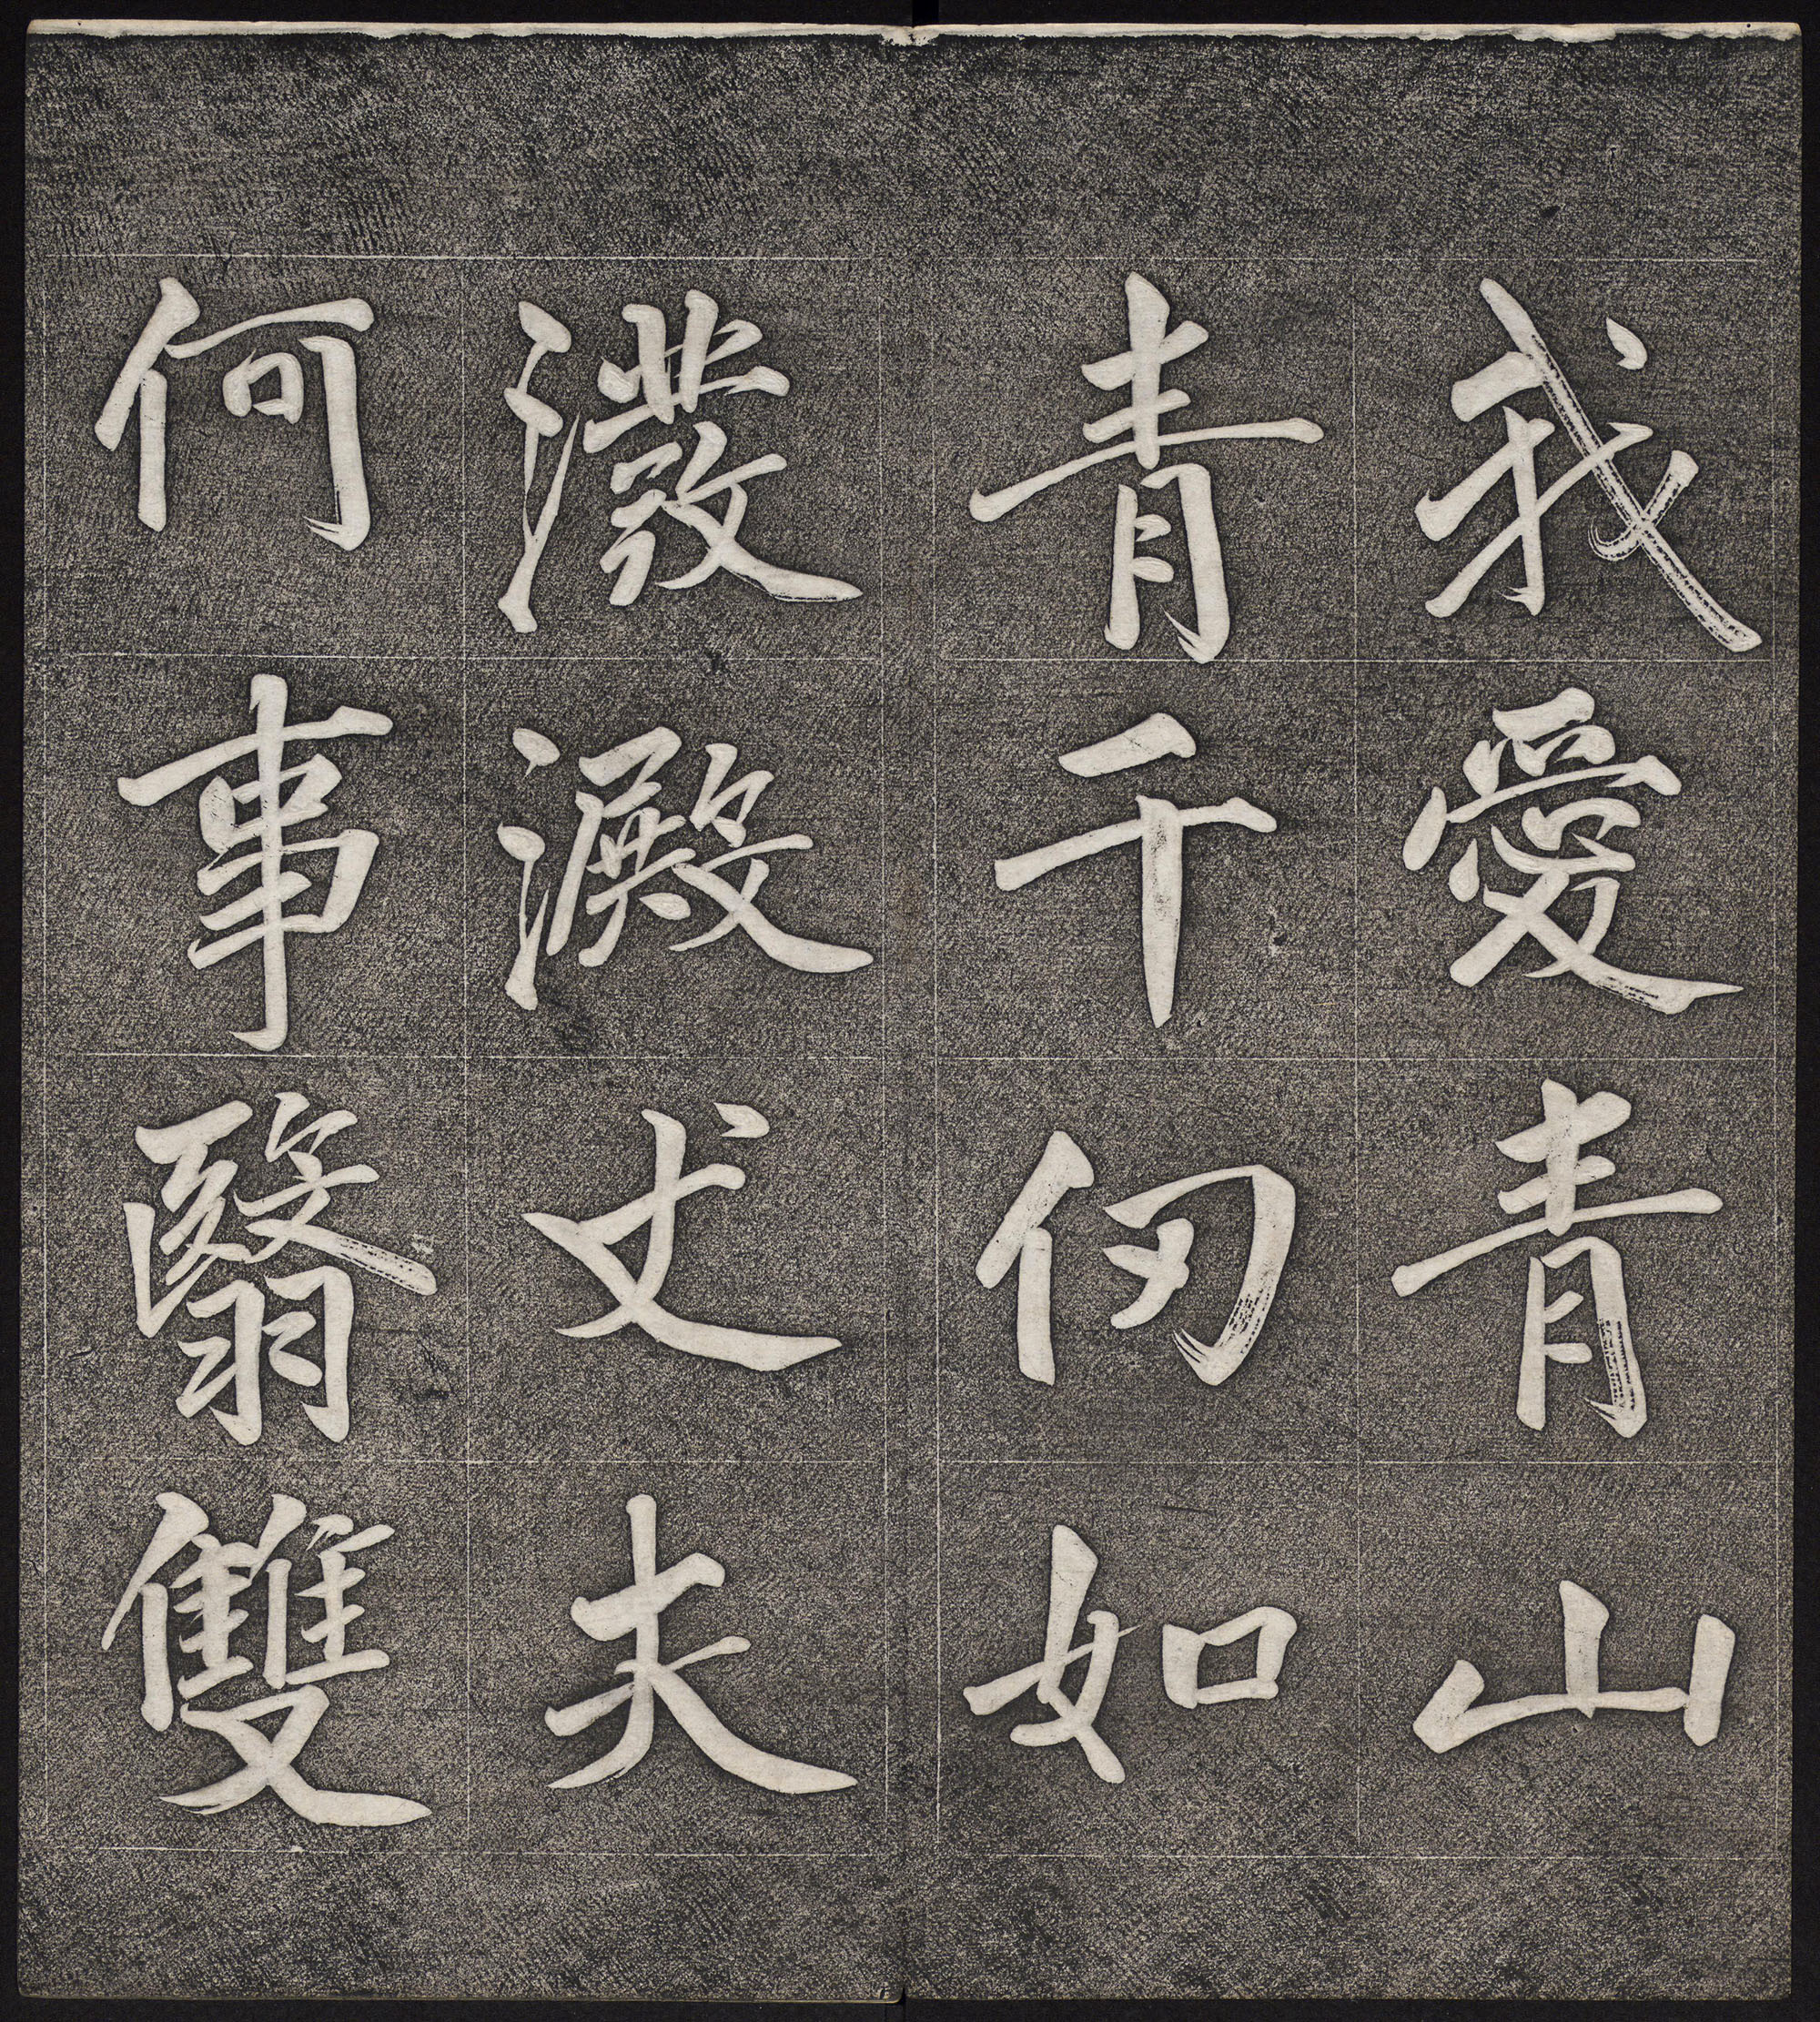 我愛青山
青千仞如
潑澱丈夫
何事翳雙